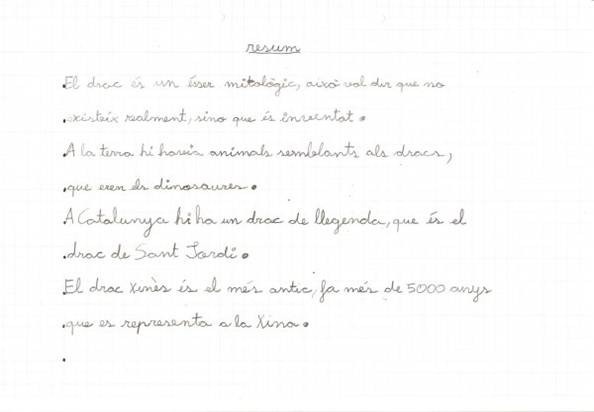 resum
El drac és un ésser mitològic, això vol dir que no
existeix realment, sino que és inventat.
A la terra hi havia animals semblants als dracs,
que eren els dinosaures.
A Catalunya hi ha un drac de llegenda, que és el
drac de Sant Jordi.
El drac xinès és el més antic, fa més de 5000 anys
que es representa a la Xina.